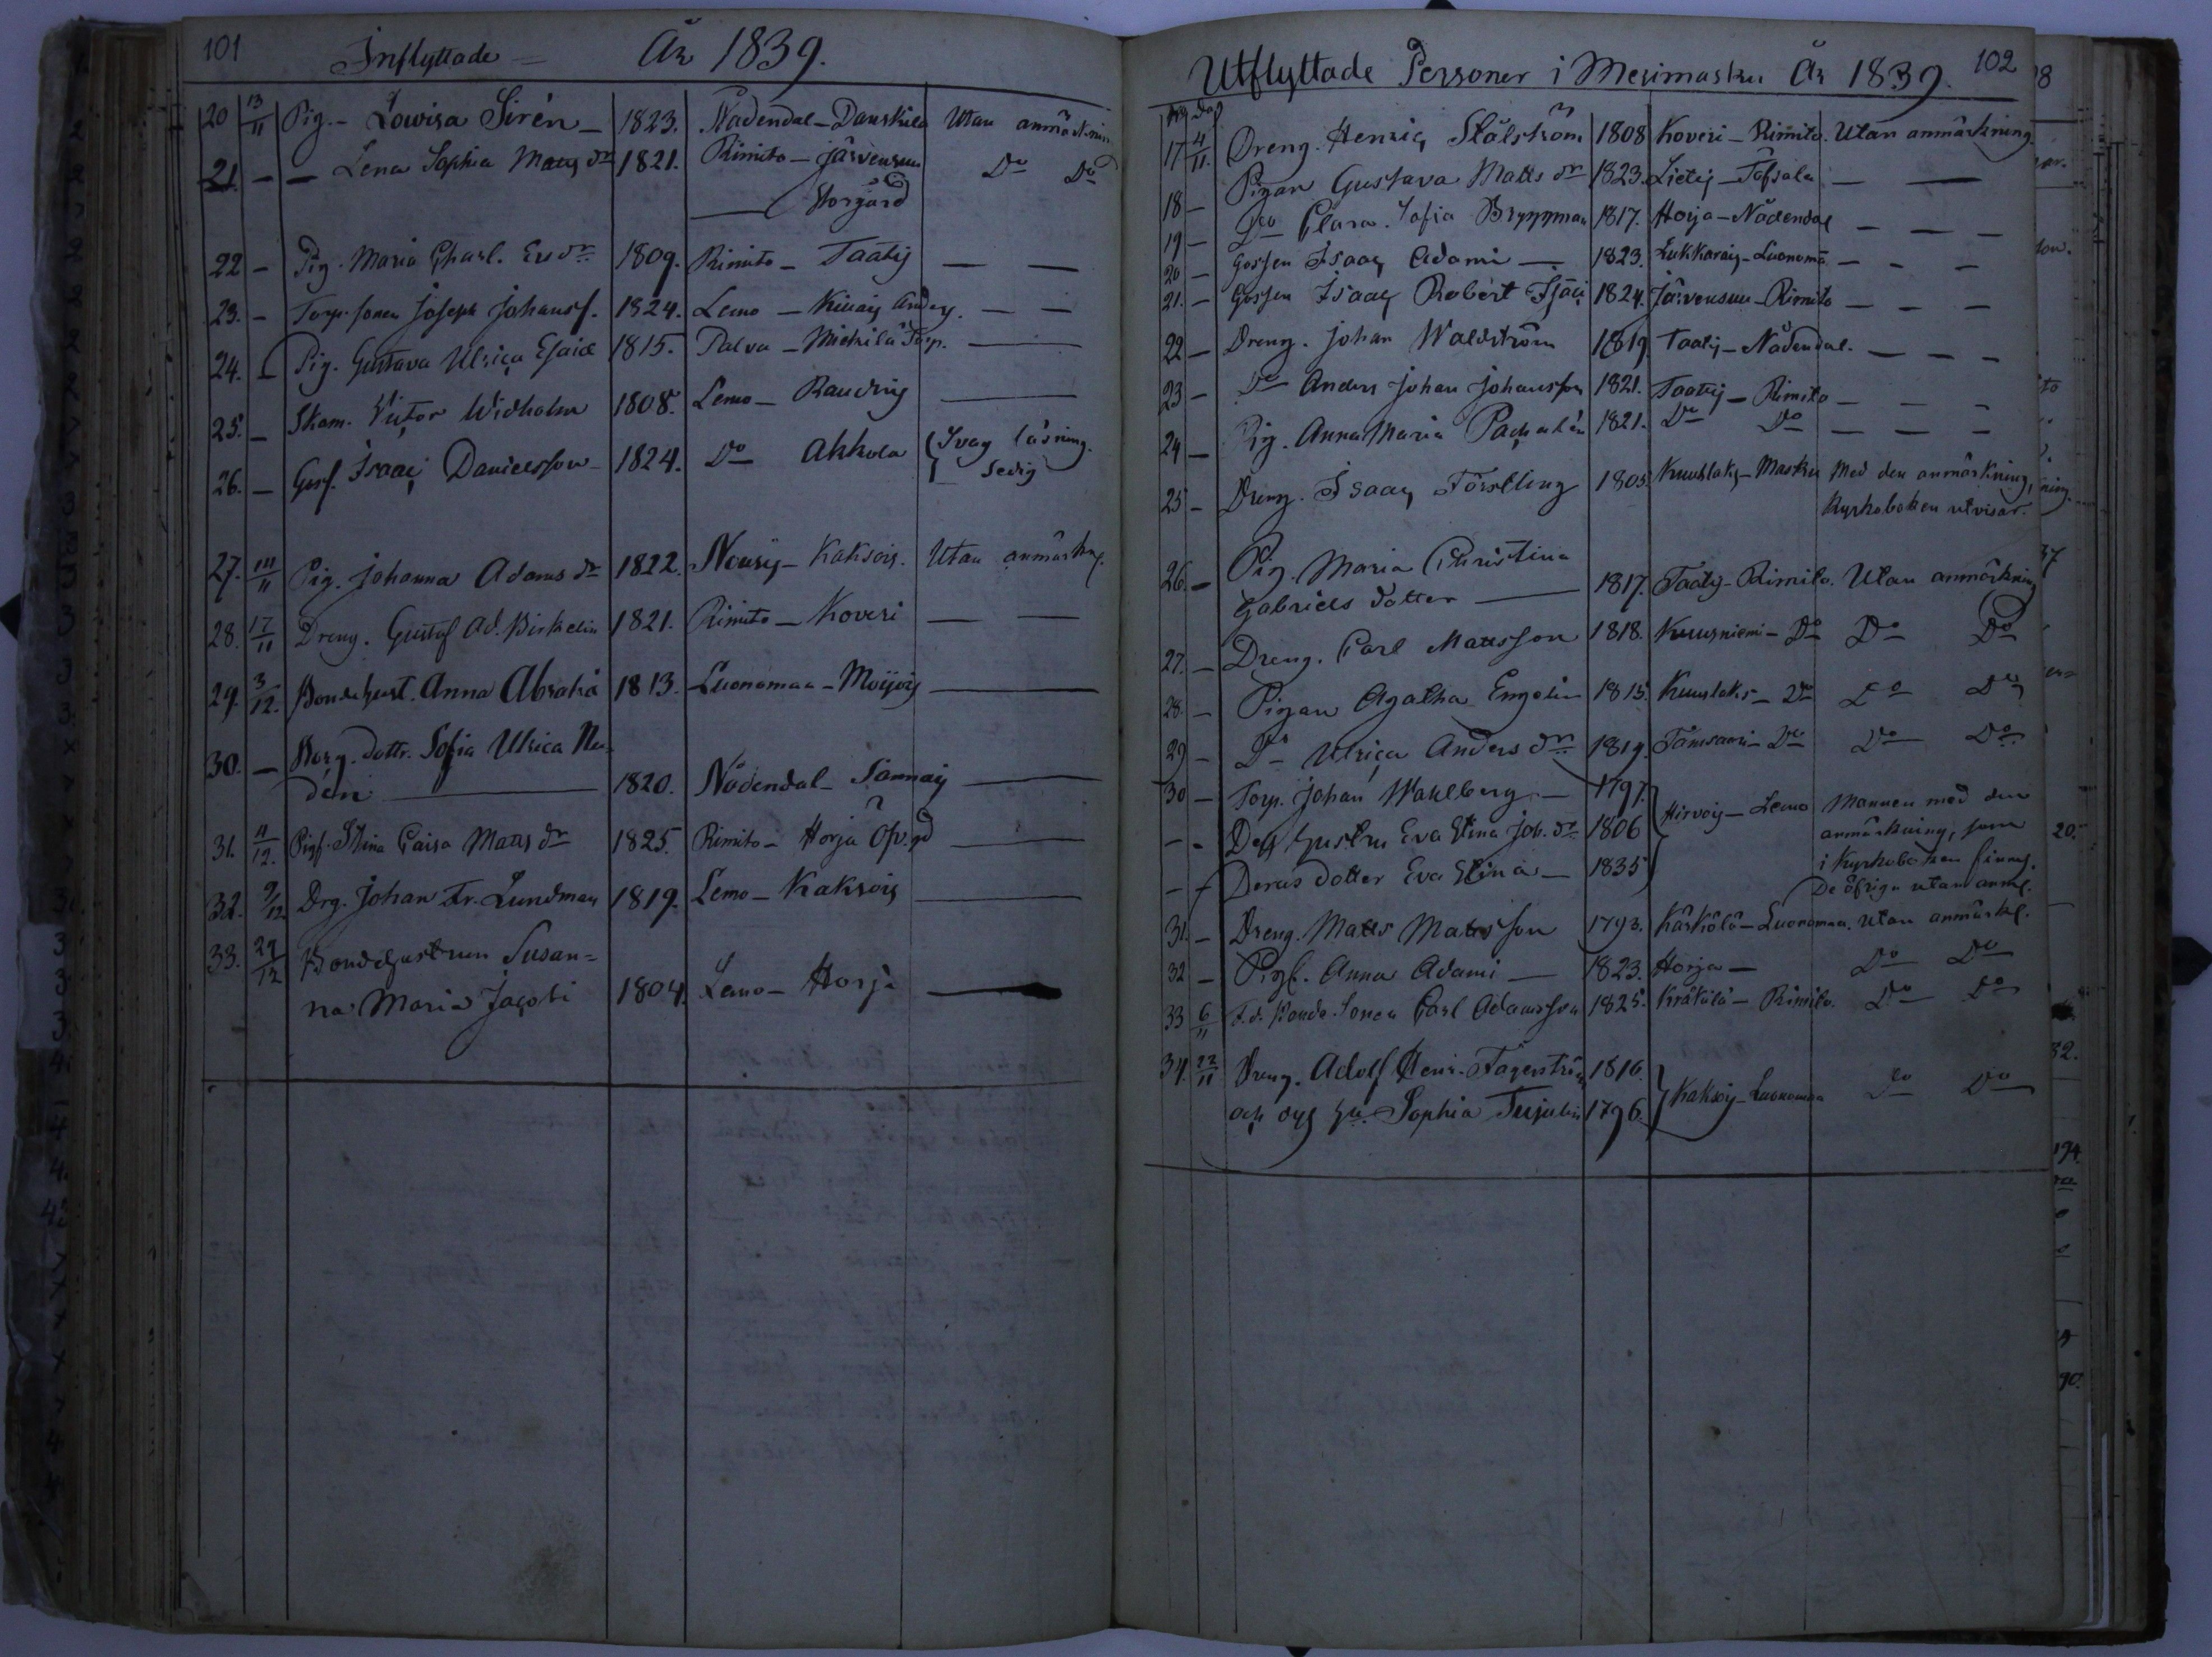 101
Inflyttade — År 1839.
20 13/11 Pig. Lowisa Sirén — 1823. Nådendal — Danskila Utan anmärkning
21. — — Lena Sophia Matts dr 1821. Rimito — Järvensuu Do Do
— Storgård
22 — Pig. Maria Charl. Er. dr 1809. Rimito — Taatis — —
23. — Torp. sonen Joseph Johanss. 1824. Lemo — Anders. — —
24. — Pig. Gustava Ulrica Esaiæ 1815. Palva — Mickilä Torp. —
25. — Skom. Victor Widholm 1808. Lemo — —
26. — Goss. Isaac Danielsson 1824. Do Akkola Svag läsning.
Sedig
27. Pig. Johanna Adams dr 1822. Nousis — Kaksois. Utan anmärkng.
28. 17/11 Dreng. Gustaf Ad. Birkelin 1821. Rimito — Koveri — —
29. 3/12. Bondehust. Anna Abrahä 1813. Luonomaa — Moijois —
30. — Borg. dottr. Sofia Ulrica Nu-
dén — 1820. Nådendal — Sannais —
31. 4/12. Pigf. Stina Caisa Matts dr 1825. Rimito — Horja Öfv. gd —
32. 9/12. Drg. Johan Fr. Lundman 1819. Lemo — Kaksois —
33. 29/12 Bondehustrun Susan=
na Maria Jacobi 1804. Lemo — Horja —
102
Utflyttade Personer i Merimasku År 1839.
No Dag
17 4/11. Dreng. Henric Stålström 1808 Koveri — Rimito. Utan anmärkning.
18 — Pigan Gustava Matts dr 1823. Lietis — Töfsala — —
19 — Do Clara Sofia Bryggman 1817. Horja — Nådendal — — —
20 — Gossen Isaac Adami — 1823. Lukkarais — Luonoma — — —
21. — Gossen Isaac Robert Isaci 1824. Järvensuu — Rimito — — —
22 — Dreng. Johan Waldström 1819 Taatis — Nådendal. — — —
23 — Do Anders Johan Johansson 1821. Taatis — Rimito — — —
24 — Pig. Anna Maria Pachalén 1821. Do Do — — —
25 — Dreng. Isaac Förstling 1805. Kuuslaks — Masku Med den anmärkning,
Kyrkoboken utvisar.
26. — Pig. Maria Christina
Gabriels dotter — 1817. Taatis — Rimito. Utan anmärkning
27. — Dreng. Carl Mattsson 1818. Kuusniemi — Do Do Do
28. — Pigan Agatha Engelin 1815. Kuuslaks — Do Do Do
29 — Do Ulrica Anders dr 1819. Tamsaari — Do Do Do
30 — Torp. Johan Wahlberg — 1797. Hirvois — Lemo Mannen med den
— — Dess hustru Eva Stina Joh. dr 1806 anmärkning, som
— — Deras dotter Eva Stina — 1835 i Kyrkoboken finnes.
De öfriga utan anmg.
31. — Dreng. Matts Mattsson 1793. Kärkölä — Luonomaa. utan anmärkg.
32 — Pigf. Anna Adami — 1823. Horja — Do Do
33 6/11 F. d. Bonde Sonen Carl Adamsson 1825. Kräkölä — Rimito. Do Do
34. 22/11 Dreng. Adolf Henr. Fagerström 1816. Kaksois — Luonomaa Do Do
och dess hu. Sophia 1796.